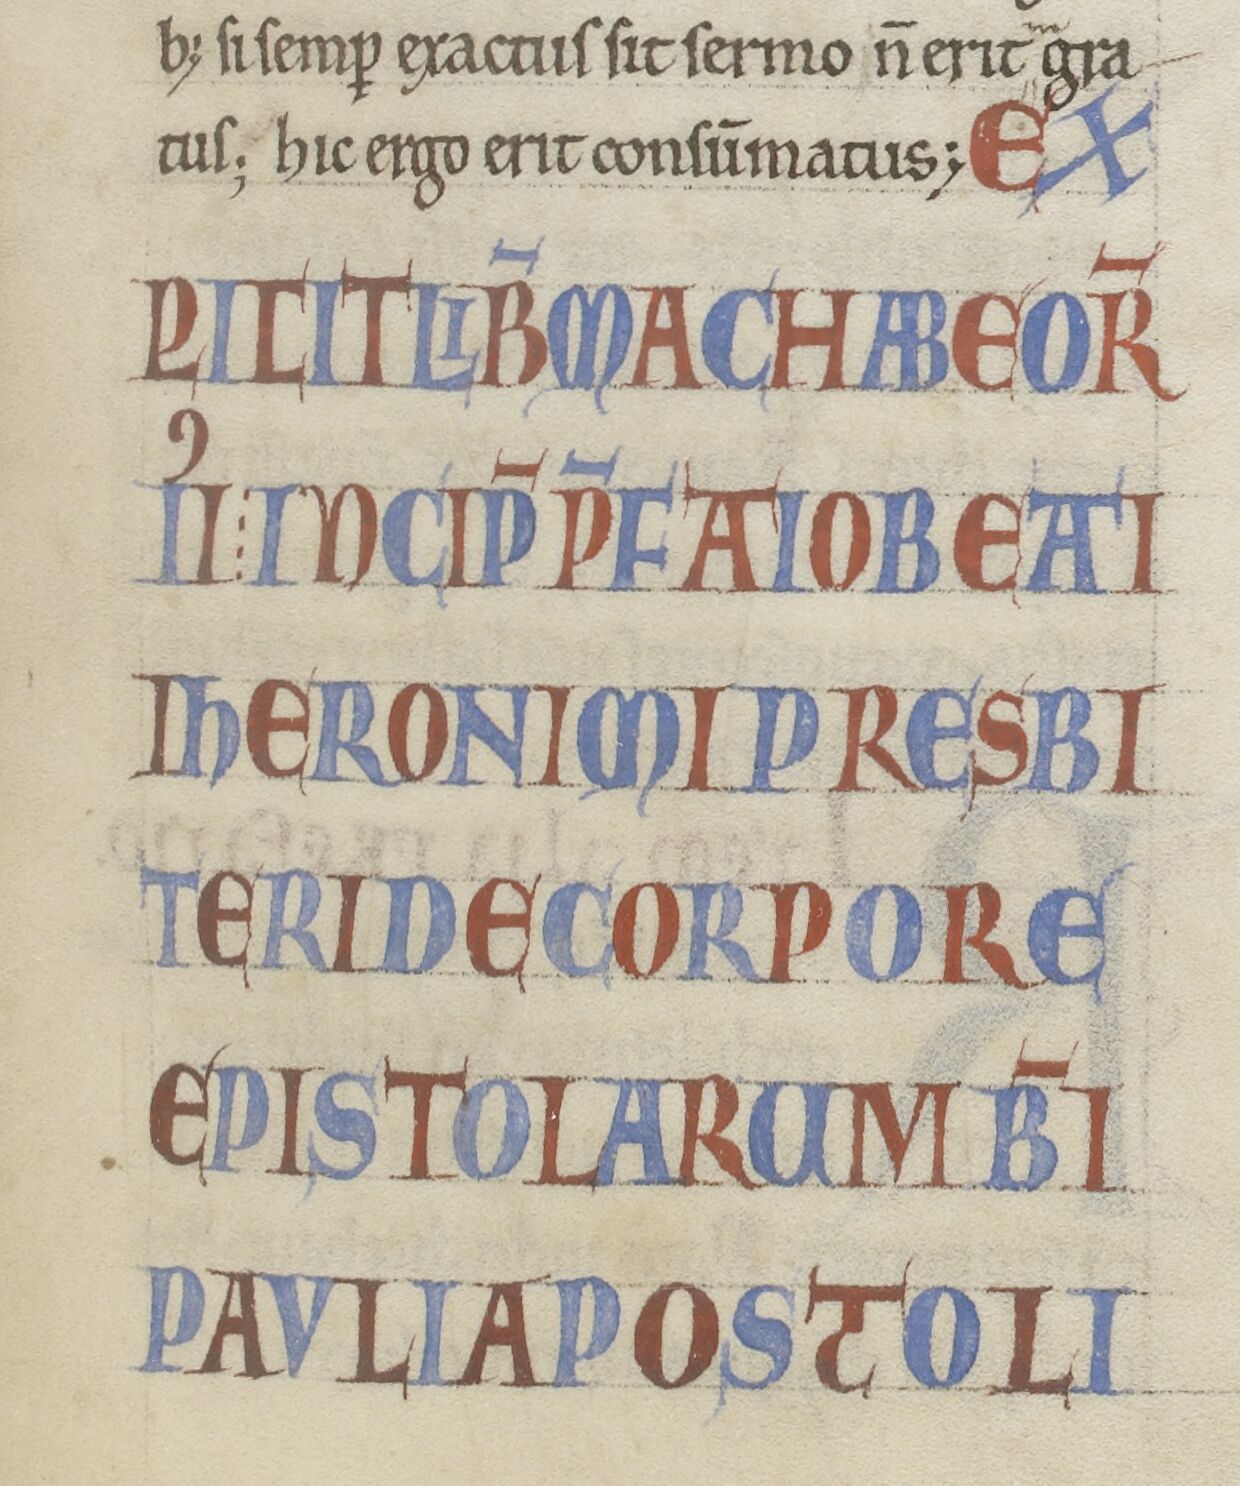 b; si semꝑ exactus sit sermo n̄ erit gra
tus; hic ergo erit consūmatus; EX
PLICIT LIB̄ MACHABEOR̄
II: INCIP̄ P̄FATIO BEATI
IHERONIMI PRESBI
TERI DE CORPORE
EPISTOLARUM B̄I
PAVLI APOSTOLI